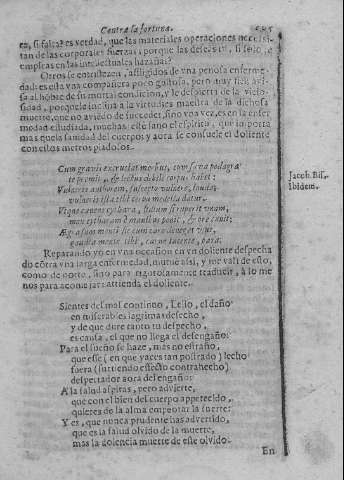 Contra la fortuna.
ra, si falta? es verdad, que las materiales operaciones
tan de las corporales fuerças; porque las desea tu, si solo te
empleas en las intelectuales hazañas?
Otros se entristecen, afligidos de vna penosa enferme
dad: es ella vna compañera poco gustosa, pero muy
sa al hõbre de su mortal condicion, y le despierta de la
sidad, porque le inclina a la virtud; es maestra de la dichosa
muerte, que no auiedo de suceder, sino vna vez, es en la enfer
modad estudiada, muchas: esté sano el espiritu, que importa
mas que la sanidad del cuerpo; y aora se consuele el doliente
con estos metros piadosos.
Cum grauis excruciat morbus, cum saua podagra
te premit, & lectus debile corpus habet;
Vulneris authorem, suscepto vulnere, laudes;
vulneris ista tibi certa medela datur.
Vtque canens cythara, fidium si ruperit vnam,
mox cytharam è manibus ponit, & ore canit;
Ægra suos menti sic cum caro deneget vsus,
gaudia mente tibi, carne iacente, para.
Jacob. Bis.
Ibidem.
Reparando yo en vna ocasion en vn doliente despecha
do cõtra vna larga enfermedad, mudé assi, y me valí de esto,
como de norte, sino para rigurosamente traducir, à lo me
nos para aconsejar: atienda el doliente.
Sientes del mal continuo, Lelio, el daño
en miserables lagrimas deshecho,
y de que dure tanto tu despecho,
es causa, el que no llega el desengaño:
Para el sueño se haze, mas no estraño,
que esse (en que yaces tan postrado) lecho
fuera (surtiendo efecto contrahecho)
despertador aora del engaño:
A la salud aspiras, pero advierte,
que con el bien del cuerpo apetecido,
quieres de la alma empeorar la suerte:
Y es, que nunca prudente has advertido,
que es la salud olvido de la muerte,
mas la dolencia muerte de este olvido.
En